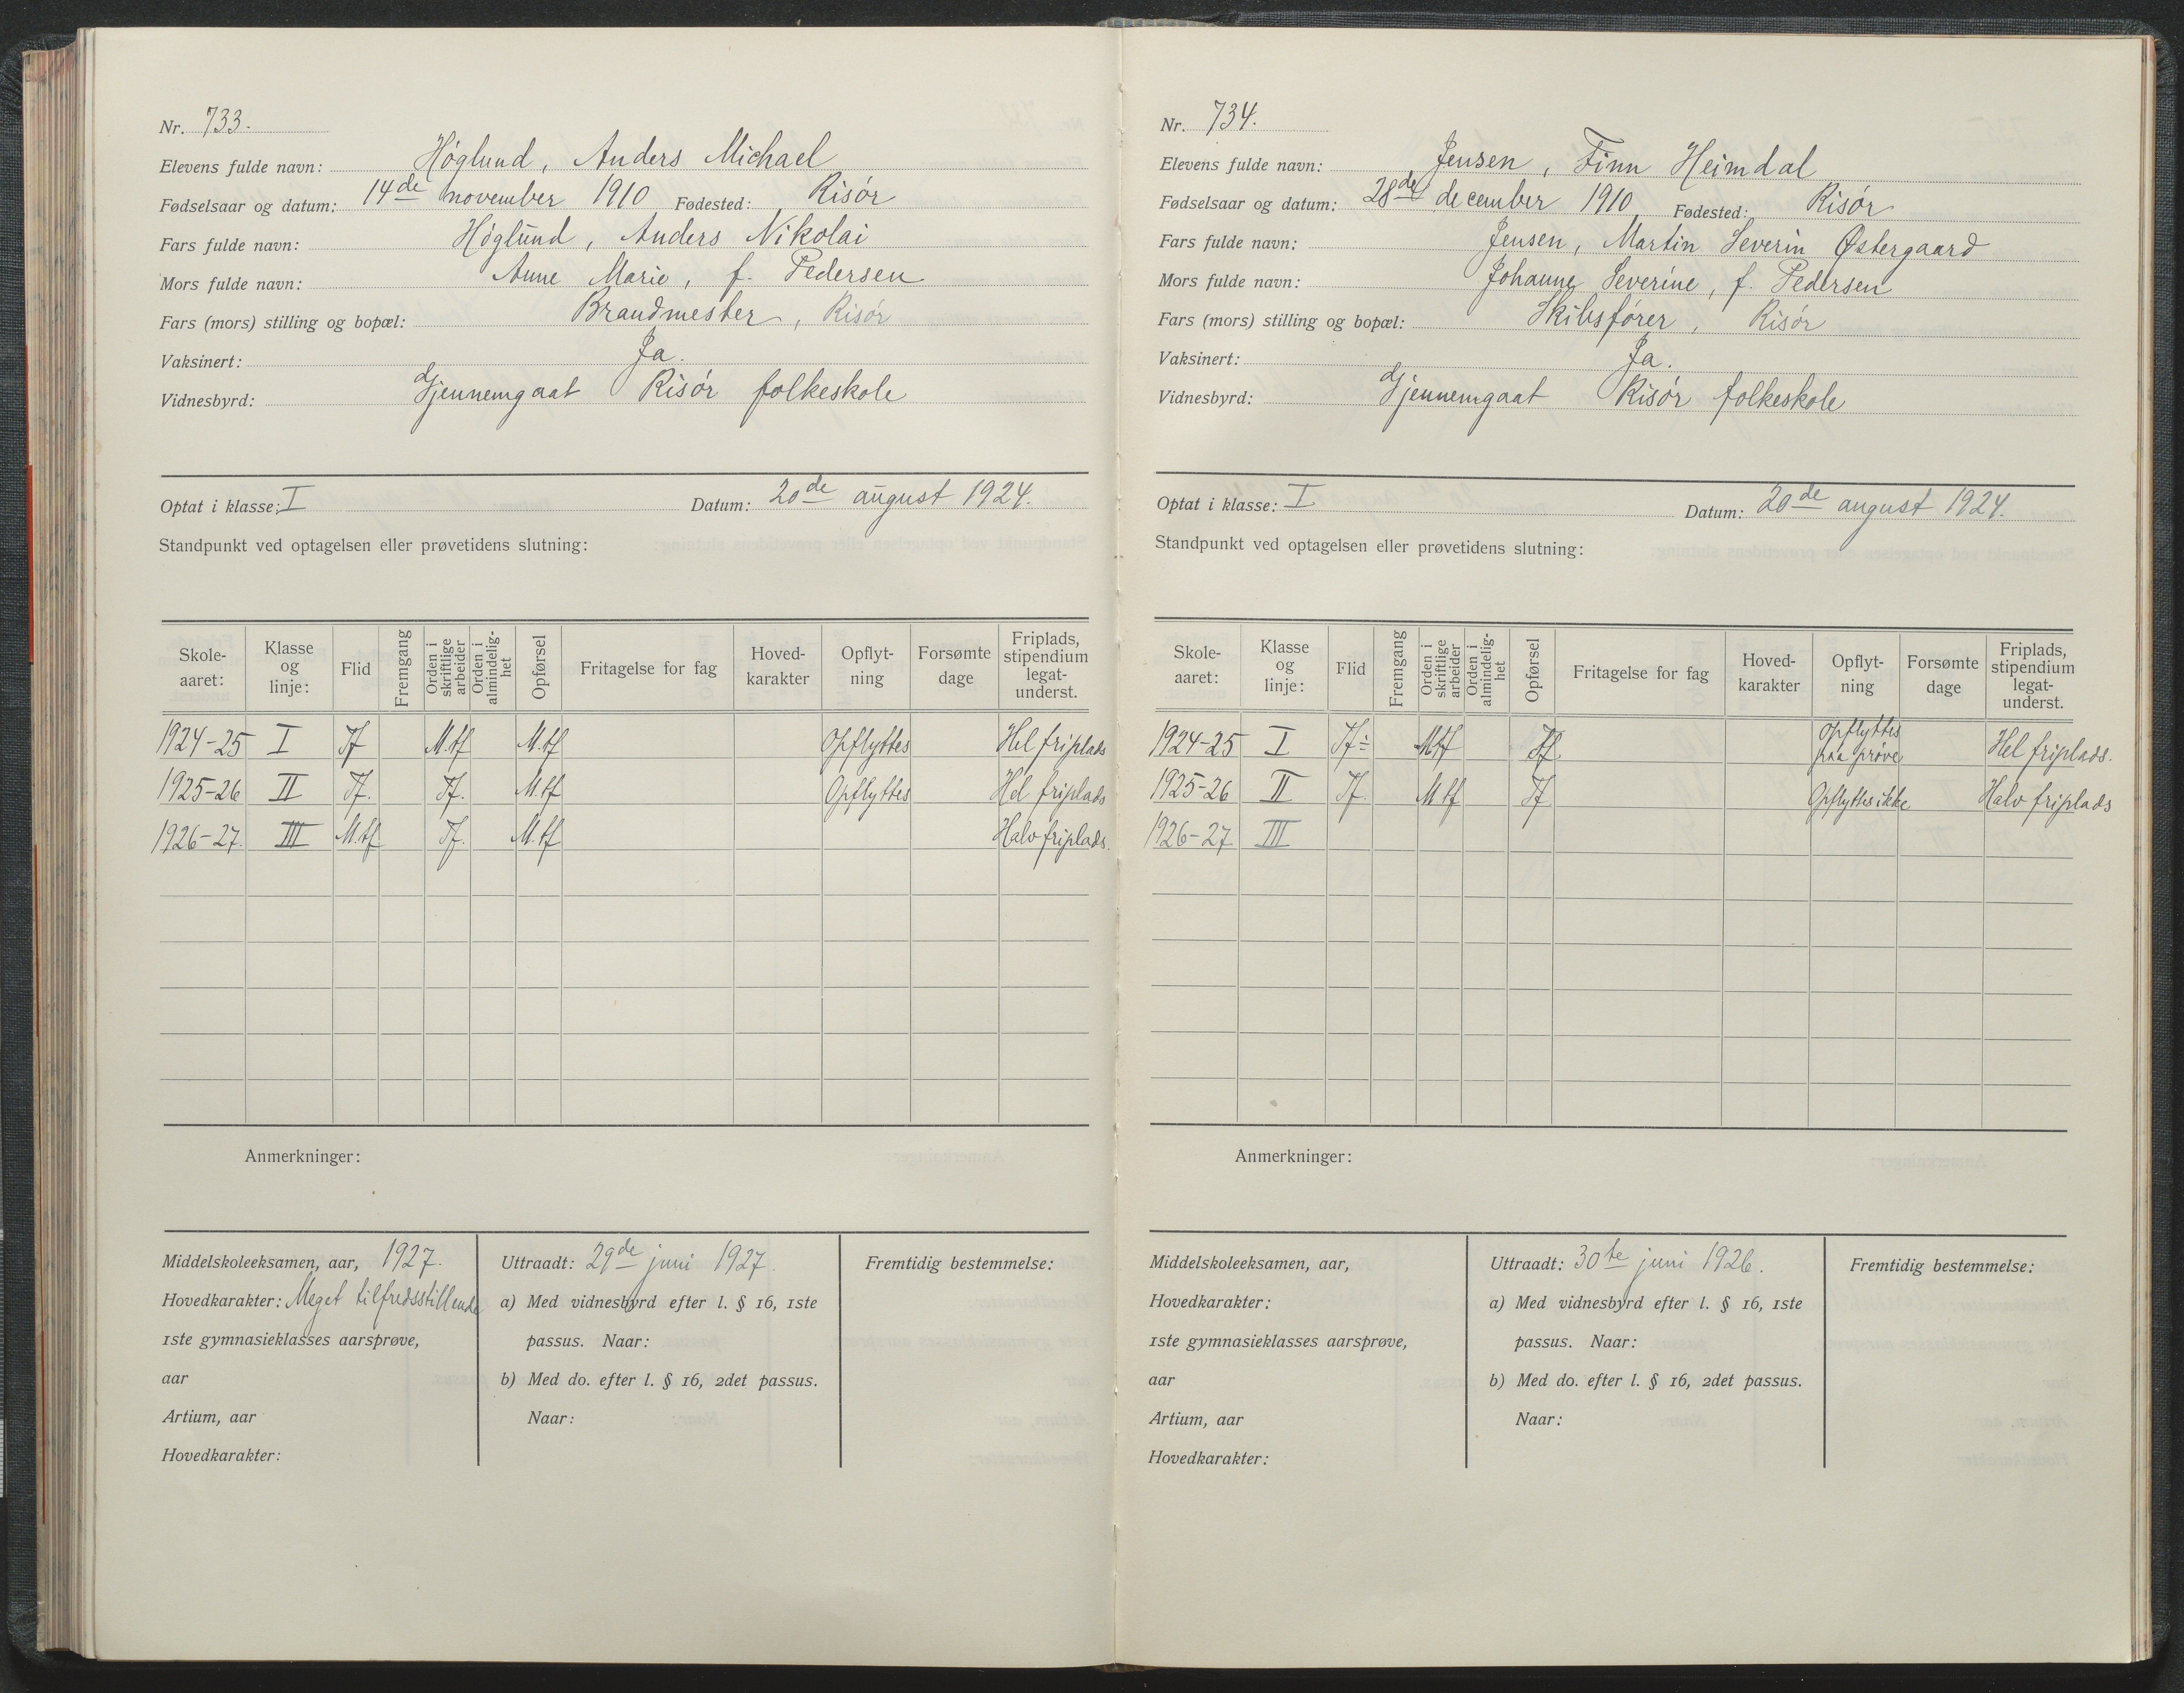 Nr. 733.
Elevens fulde navn: Höglund, Anders Michael
Fødselsaar og datum: 14de november 1910 Fødested: Risör
Fars fulde navn: Höglund, Anders Nikolai
Mors fulde navn: Anne Marie, f. Pedersen
Fars (mors) stilling og bopæl: Brandmester, Risör
Vaksinert: Ja.
Vidnesbyrd: Gjennemgaat Risör folkeskole
Optat i klasse: I Datum: 20de august 1924.
Standpunkt ved optagelsen eller prøvetidens slutning:
Skoleaaret: Klasse og linje: Flid Fremgang Orden i skriftlige arbeider Orden i almindelighet Opførsel Fritagelse for fag Hovedkarakter Opflytning Forsømte dage Friplads, stipendium legatunderst.
1924-25 I Tf M.tf M.tf Opflyttes Hel friplads
1925-26 II Tf. Tf. M.tf Opflyttes Hel friplads
1926-27. III M.tf Tf. M.tf Halv friplads.
Anmerkninger:
Middelskoleeksamen, aar, 1927.
Hovedkarakter: Meget tilfredsstillende
1ste gymnasieklasses aarsprøve,
aar
Artium, aar
Hovedkarakter:
Uttraadt: 29de juni 1927.
a) Med vidnesbyrd efter l. § 16, 1ste
passus. Naar:
b) Med do. efter l. § 16, 2det passus.
Naar:
Fremtidig bestemmelse:
Nr. 734.
Elevens fulde navn: Jensen, Finn Heimdal
Fødselsaar og datum: 28de december 1910 Fødested: Risör
Fars fulde navn: Jensen, Martin Severin Østergaard
Mors fulde navn: Johanne Severine, f. Pedersen
Fars (mors) stilling og bopæl: Skibsfører, Risör
Vaksinert: Ja.
Vidnesbyrd: Gjennemgaat Risör folkeskole
Optat i klasse: I Datum: 20de august 1924.
Standpunkt ved optagelsen eller prøvetidens slutning:
Skoleaaret: Klasse og linje: Flid Fremgang Orden i skriftlige arbeider Orden i almindelighet Opførsel Fritagelse for fag Hovedkarakter Opflytning Forsømte dage Friplads, stipendium legatunderst.
1924-25 I Tf÷ Mtf Tf Opflyttes paa prøve Hel friplads.
1925-26 II Tf. Mtf Tf Opflyttes ikke Halv friplads
1926-27 III
Anmerkninger:
Middelskoleeksamen, aar,
Hovedkarakter:
1ste gymnasieklasses aarsprøve,
aar
Artium, aar
Hovedkarakter:
Uttraadt: 30te juni 1926.
a) Med vidnesbyrd efter l. § 16, 1ste
passus. Naar:
b) Med do. efter l. § 16, 2det passus.
Naar:
Fremtidig bestemmelse: